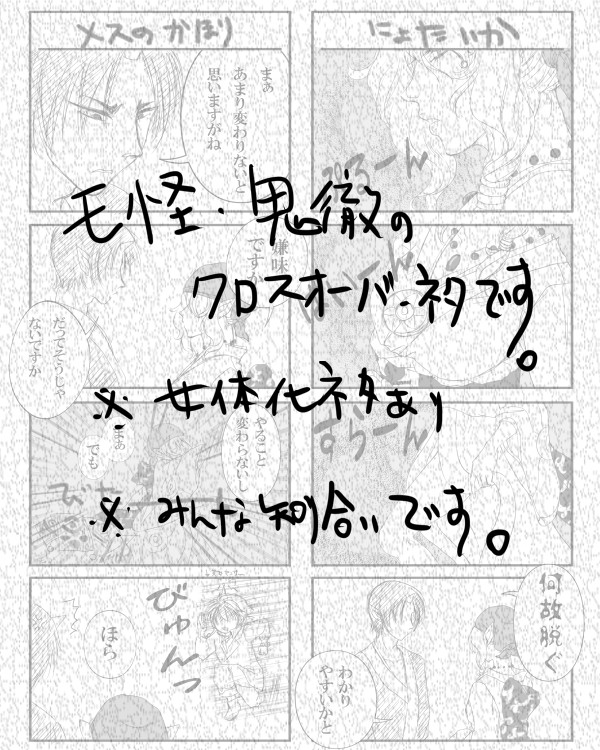 モ怪・鬼徹の
クロスオーバーネタです。
※ 女体化ネタあり
※ みんな知り合いです。
にょたいか
ぷるーん
何故脱ぐ
わかり
やすいかと
メスのかほり
まぁ
あまり変わりないと
思いますがね
嫌味
ですか
だってそうじゃ
ないですか
やること
変わらないし
まぁ
でも
びゅんっ
ほら